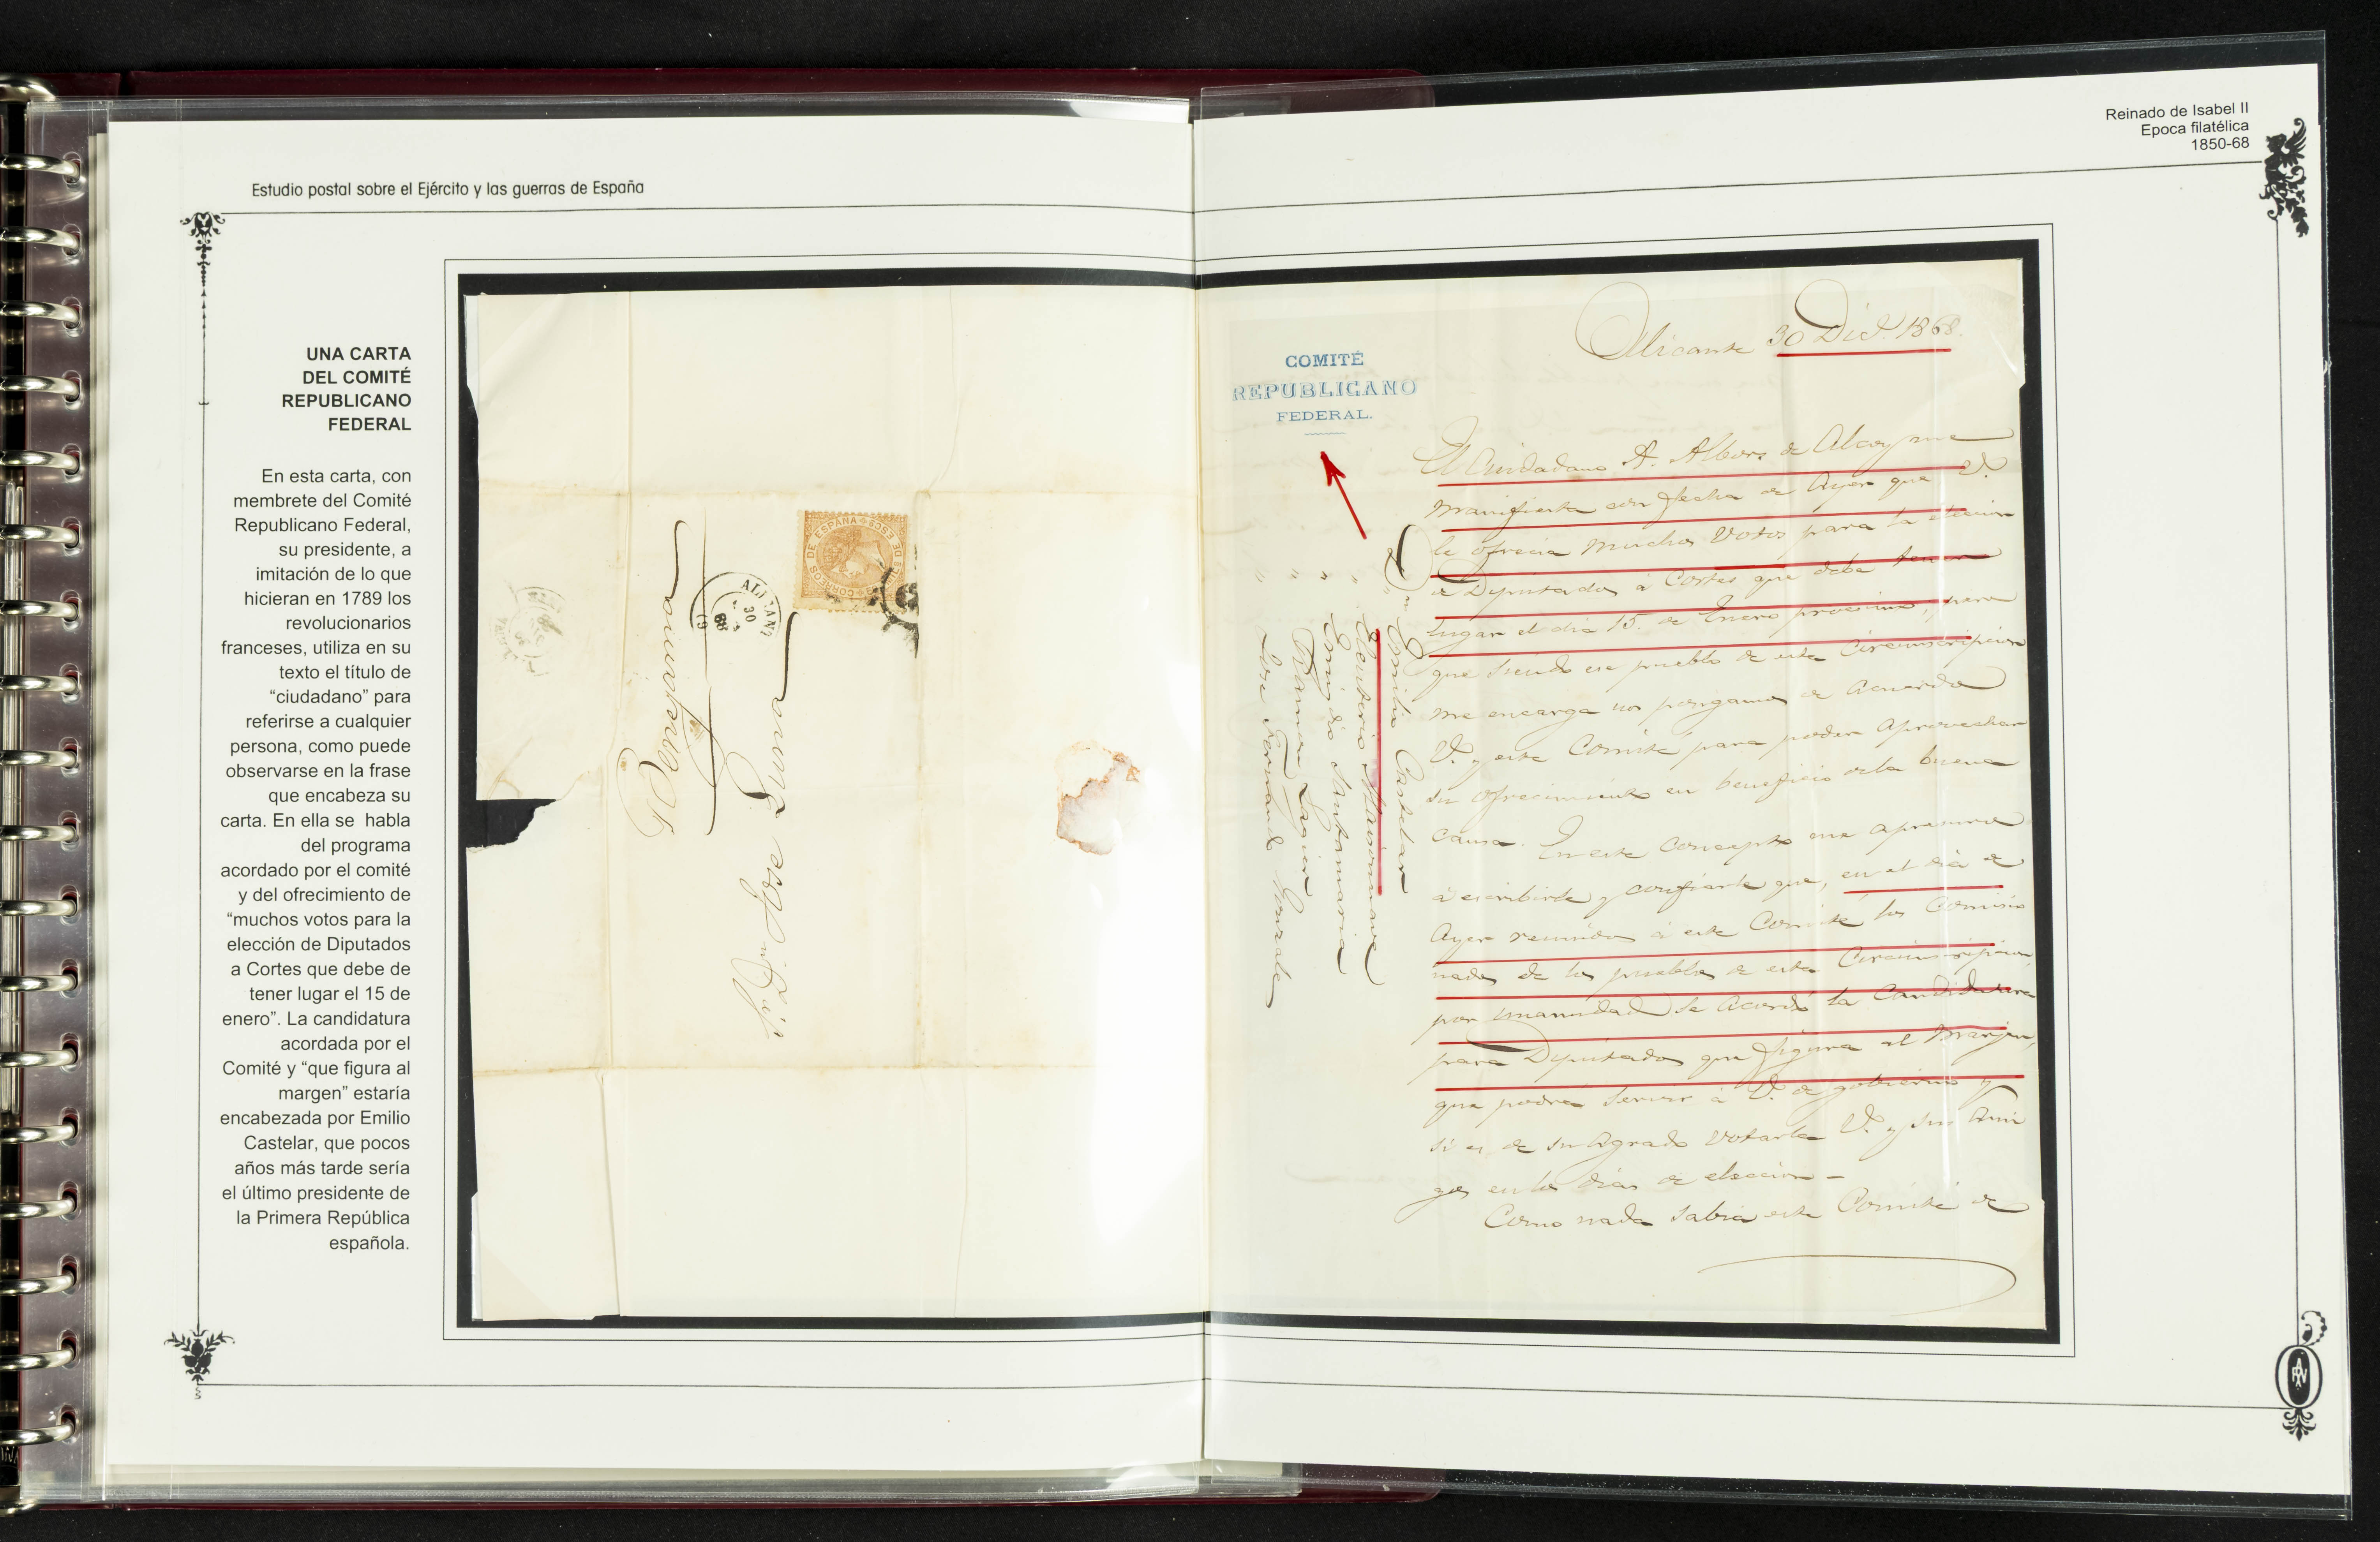 Estudio postal sobre el Ejército y las guerras de España
Reinado de Isabel II
Epoca filatélica
1850-68
UNA CARTA
DEL COMITÉ
REPUBLICANO
FEDERAL
En esta carta, con
membrete del Comité
Republicano Federal,
su presidente, a
imitación de lo que
hicieran en 1789 los
revolucionarios
franceses, utiliza en su
texto el título de
“ciudadano” para
referirse a cualquier
persona, como puede
observarse en la frase
que encabeza su
carta. En ella se habla
del programa
acordado por el comité
y del ofrecimiento de
“muchos votos para la
elección de Diputados
a Cortes que debe de
tener lugar el 15 de
enero”. La candidatura
acordada por el
Comité y “que figura al
margen” estaría
encabezada por Emilio
Castelar, que pocos
años más tarde sería
el último presidente de
la Primera República
española.
CORREOS DE ESPAÑA
DE ESCS
ALICANT
30
68
Sr. Dn. Jose Luna
COMITÉ
REPUBLICANO
FEDERAL.
Alicante 30 Dic. 1868.
Dn. Emilio Castelar
" Eleuterio Maisonnave
" Emigdio Santamaria
" Ramon Lagier
" Jose Fernando Gonzalez
El Ciudadano A. Albors de Alcoy me
manifiesta con fecha de Ayer que V.
le ofrecia muchos Votos para la eleccion
de Diputados á Cortes que debe tener
lugar el dia 15. de Enero procsimo, pero
que siendo ese pueblo de esta Circunscripcion
me encarga nos pongamos de Acuerdo
V. y este Comité para poder Aprovechar
su ofrecimiento en beneficio de la buena
Causa. En este Concepto me apresuro
á escribirle y confiarle que, en el dia de
Ayer reunidos á este Comité los Comisio
nados de los pueblos de esta Circunscripcion,
por unanimidad se Acordó la Candidatura
para Diputados que figura al Marjen,
que podrá servir á V. de gobierno y
si es de su Agrado Votarla V. y sus Ami
gos en los dias de eleccion -
Como nada sabia este Comité de